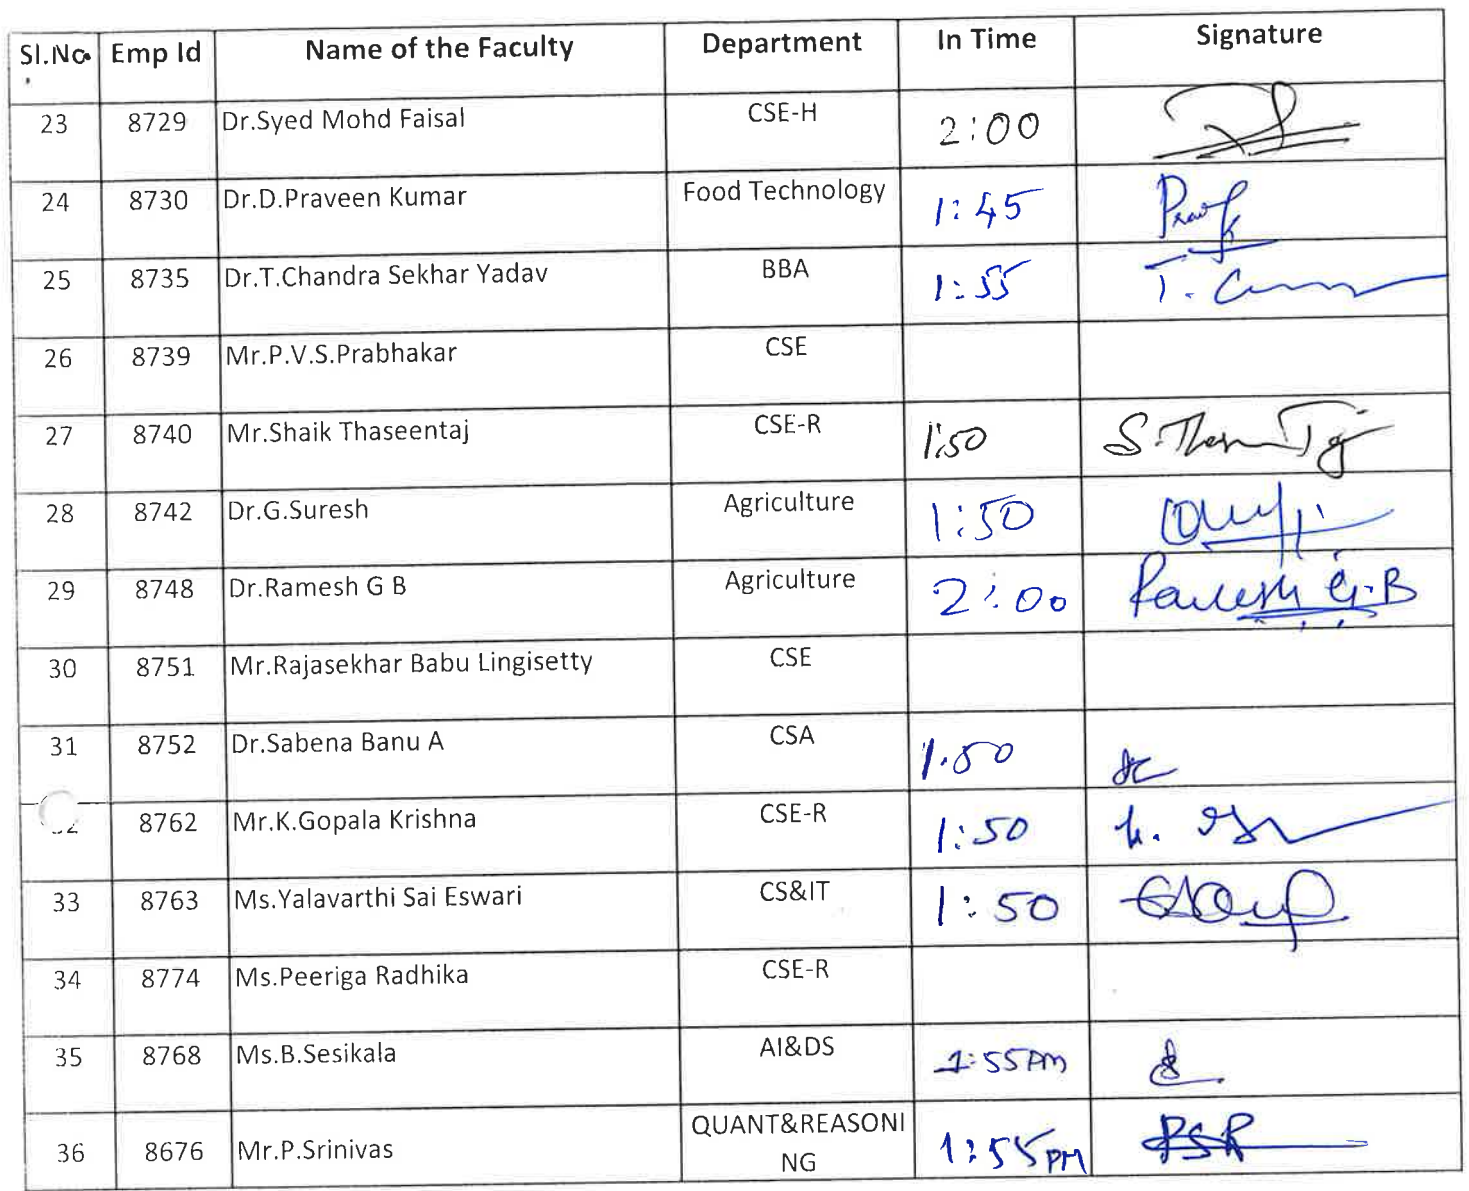 Sl.No. Emp Id Name of the Faculty Department In Time Signature
23 8729 Dr.Syed Mohd Faisal CSE-H 2:00
24 8730 Dr.D.Praveen Kumar Food Technology 1:45
25 8735 Dr.T.Chandra Sekhar Yadav BBA 1:55 T.
26 8739 Mr.P.V.S.Prabhakar CSE
27 8740 Mr.Shaik Thaseentaj CSE-R 1:50
28 8742 Dr.G.Suresh Agriculture 1:50
29 8748 Dr.Ramesh G B Agriculture 2:00 Ramesh G.B
30 8751 Mr.Rajasekhar Babu Lingisetty CSE
31 8752 Dr.Sabena Banu A CSA 1.50
8762 Mr.K.Gopala Krishna CSE-R 1:50 k.
33 8763 Ms.Yalavarthi Sai Eswari CS&IT 1:50
34 8774 Ms.Peeriga Radhika CSE-R
35 8768 Ms.B.Sesikala AI&DS 1:55PM
36 8676 Mr.P.Srinivas QUANT&REASONI 1:55PM PSR
NG